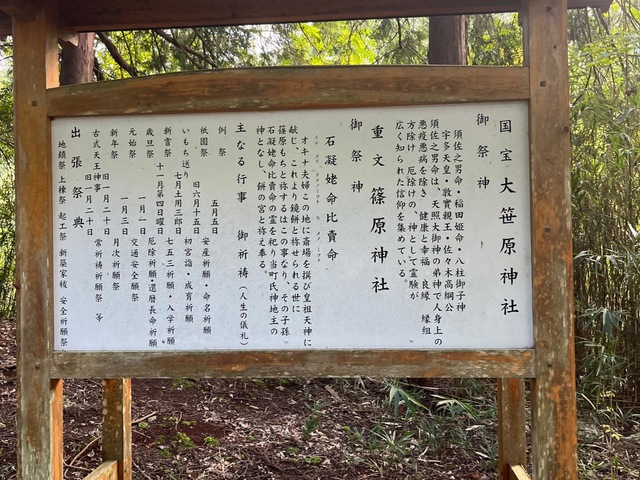 国宝 大笹原神社
御祭神
須佐之男命・稲田姫命・八柱御子神
宇多天皇・敦實親王・佐々木高綱公
須佐之男命は、天照大御神の弟神で人身上の
悪疫悪病を除き、健康と幸福、良縁、縁組
方除け、厄除けの、神として霊験が
広く知られた信仰を集めている。
重文 篠原神社
御祭神
石凝姥命比賣命
オキナ夫婦この地に斎場を撰び皇祖天神に
献じ、これより鏡餅と称せられる世に
篠原もちと称するはこの事なり、その子孫。
石凝姥命比賣命の霊を祀り当町氏神地主の
神となし、餅の宮と称え奉る。
主なる行事 御祈祷（人生の儀礼）
例祭 五月五日 安産祈願・命名祈願
祇園祭 旧六月十五日 初宮詣・成育祈願
いもち送り 七月土用三郎日 七五三祈願・入学祈願
新嘗祭 十一月第四日曜日 厄除祈願還暦長命祈願
歳旦祭 一月一日 交通安全願祭
元始祭 一月三日 月次祈願祭
新年祭 旧一月二十日 常祈祷祈願祭 等
古式天王神事 旧一月二十日
出張祭典
地鎮祭 上棟祭 起工祭 新築家祓 安全祈願祭